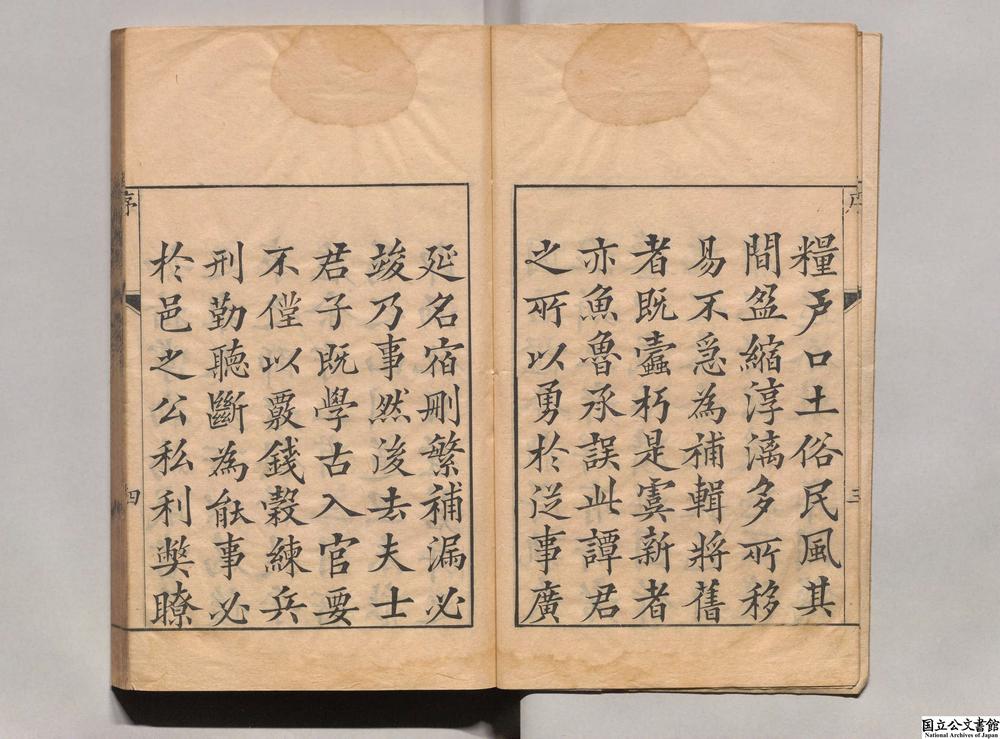 糧戶口土俗民風其
間盈縮淳漓多所移
易不急為補輯將舊
者既蠹朽是虞新者
亦魚魯承誤此譚君
之所以勇於從事廣
三
序
延名宿刪繁補漏必
竣乃事然後去夫士
君子既學古入官要
不僅以覈錢穀練兵
刑勤聽斷為能事必
於邑之公私利弊瞭
序
四
国立公文書館
National Archives of Japan